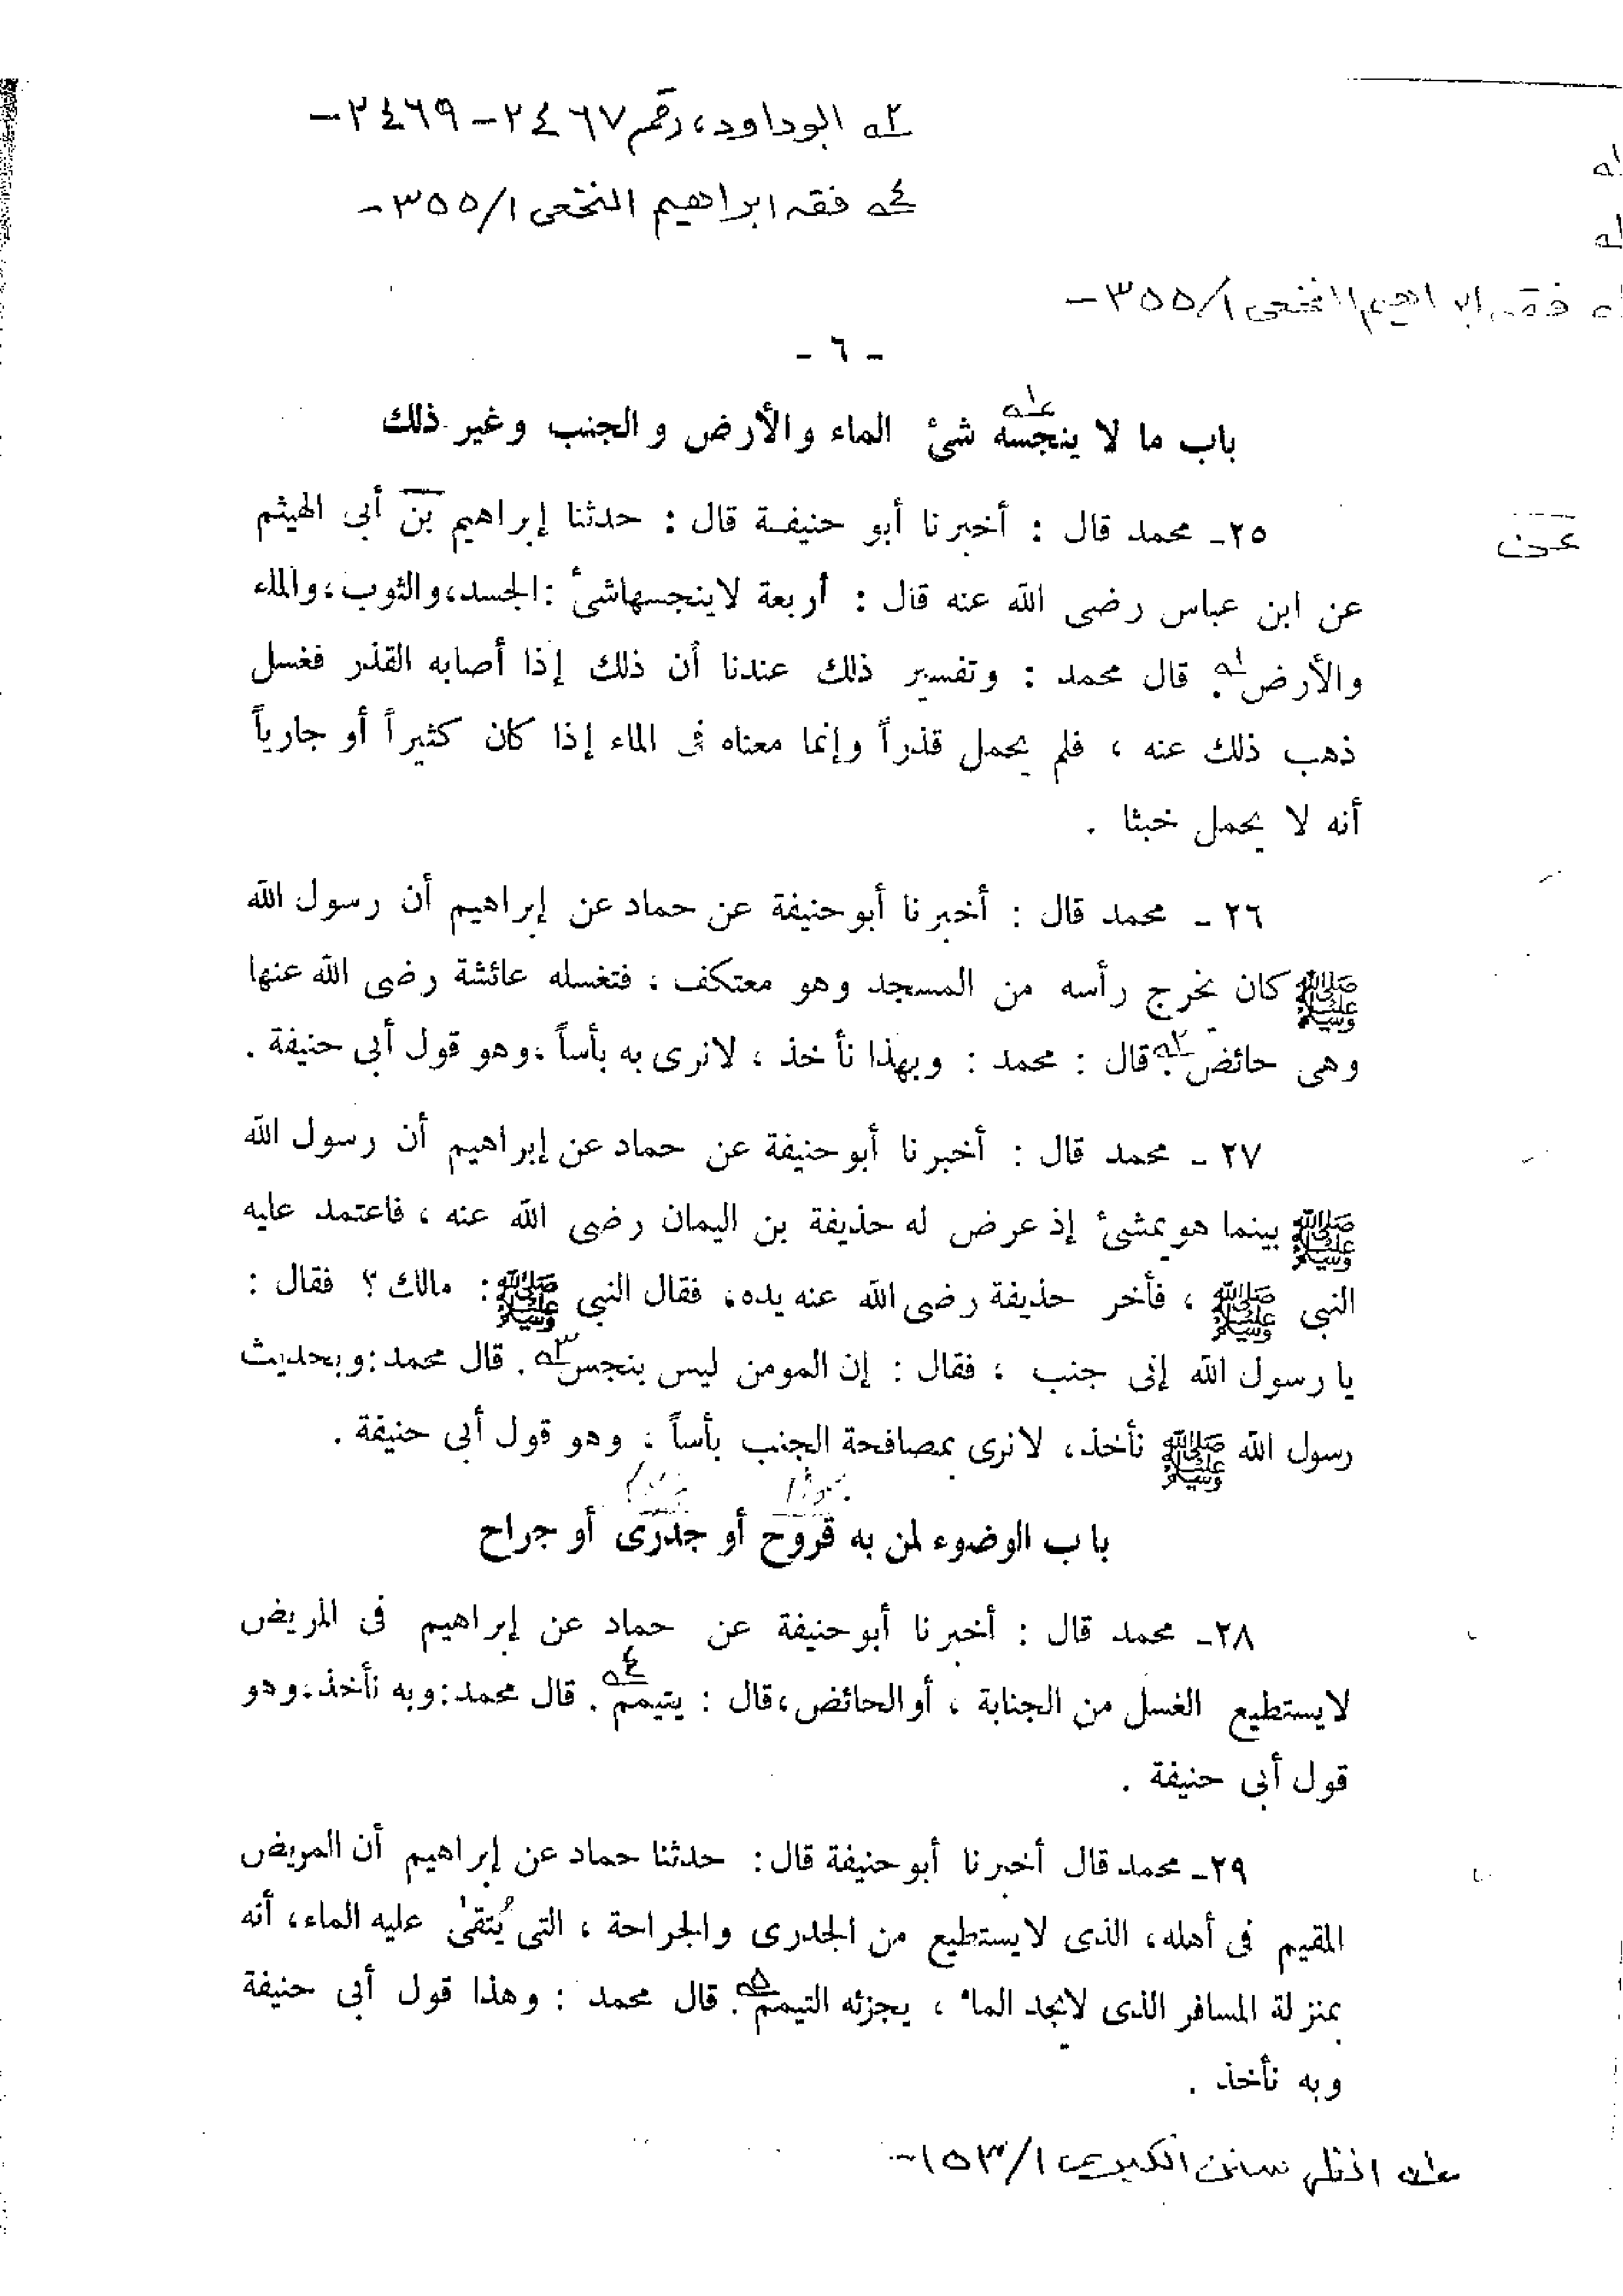 ٢ه ابوداود، رقم ٢٤٦٧-٢٤٦٩-
٤ه فقه ابراهيم النخعى ١/٣٥٥-
فقه ابراهيم النخعى ١/٣٥٥-
- ٦ -
باب ما لا ينجسه شئ الماء والأرض والجنب وغير ذلك
٢٥- محمد قال : أخبرنا أبو حنيفة قال : حدثنا إبراهيم بن أبى الهيثم
عن
عن ابن عباس رضى الله عنه قال : أربعة لاينجسهاشئ :الجسد،والثوب،والماء
والأرض١ه. قال محمد : وتفسير ذلك عندنا أن ذلك إذا أصابه القذر فغسل
ذهب ذلك عنه ، فلم يحمل قذراً وإنما معناه فى الماء إذا كان كثيراً أو جارياً
أنه لا يحمل خبثا .
٢٦ - محمد قال : أخبرنا أبوحنيفة عن حماد عن إبراهيم أن رسول الله
ﷺ كان يخرج رأسه من المسجد وهو معتكف ، فتغسله عائشة رضى الله عنها
وهى حائض٢ه. قال : محمد : وبهذا نأخذ ، لانرى به بأساً ،وهو قول أبى حنيفة .
٢٧ - محمد قال : أخبرنا أبوحنيفة عن حماد عن إبراهيم أن رسول الله
ﷺ بينما هو يمشئ إذ عرض له حذيفة بن اليمان رضى الله عنه ، فاعتمد عليه
النبى ﷺ ، فأخر حذيفة رضى الله عنه يده، فقال النبى ﷺ : مالك ؟ فقال :
يا رسول الله إنى جنب ، فقال : إن المومن ليس بنجس٣ه. قال محمد:وبحديث
رسول الله ﷺ نأخذ، لانرى بمصافحة الجنب بأساً ، وهو قول أبى حنيفة .
باب الوضوء لمن به قروح أو جدرى أو جراح
٢٨- محمد قال : أخبرنا أبوحنيفة عن حماد عن إبراهيم فى المريض
لايستطيع الغسل من الجنابة ، أوالحائض،قال : يتيمم٤ه. قال محمد:وبه نأخذ،وهو
قول أبى حنيفة .
٢٩- محمد قال أخبرنا أبوحنيفة قال: حدثنا حماد عن إبراهيم أن المريض
المقيم فى أهله، الذى لايستطيع من الجدرى والجراحة ، التى يُتقىٰ عليه الماء، أنه
بمنزلة المسافر الذى لايجد الماء ، يجزئه التيمم٥ه. قال محمد : وهذا قول أبى حنيفة
وبه نأخذ .
١ه انظر سنن الكبرى ١/١٥٣-